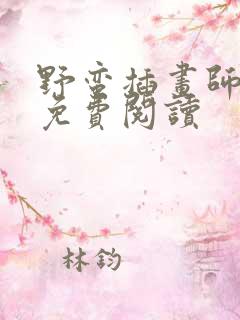 野蛮插畫師
免費閱讀
林鈞